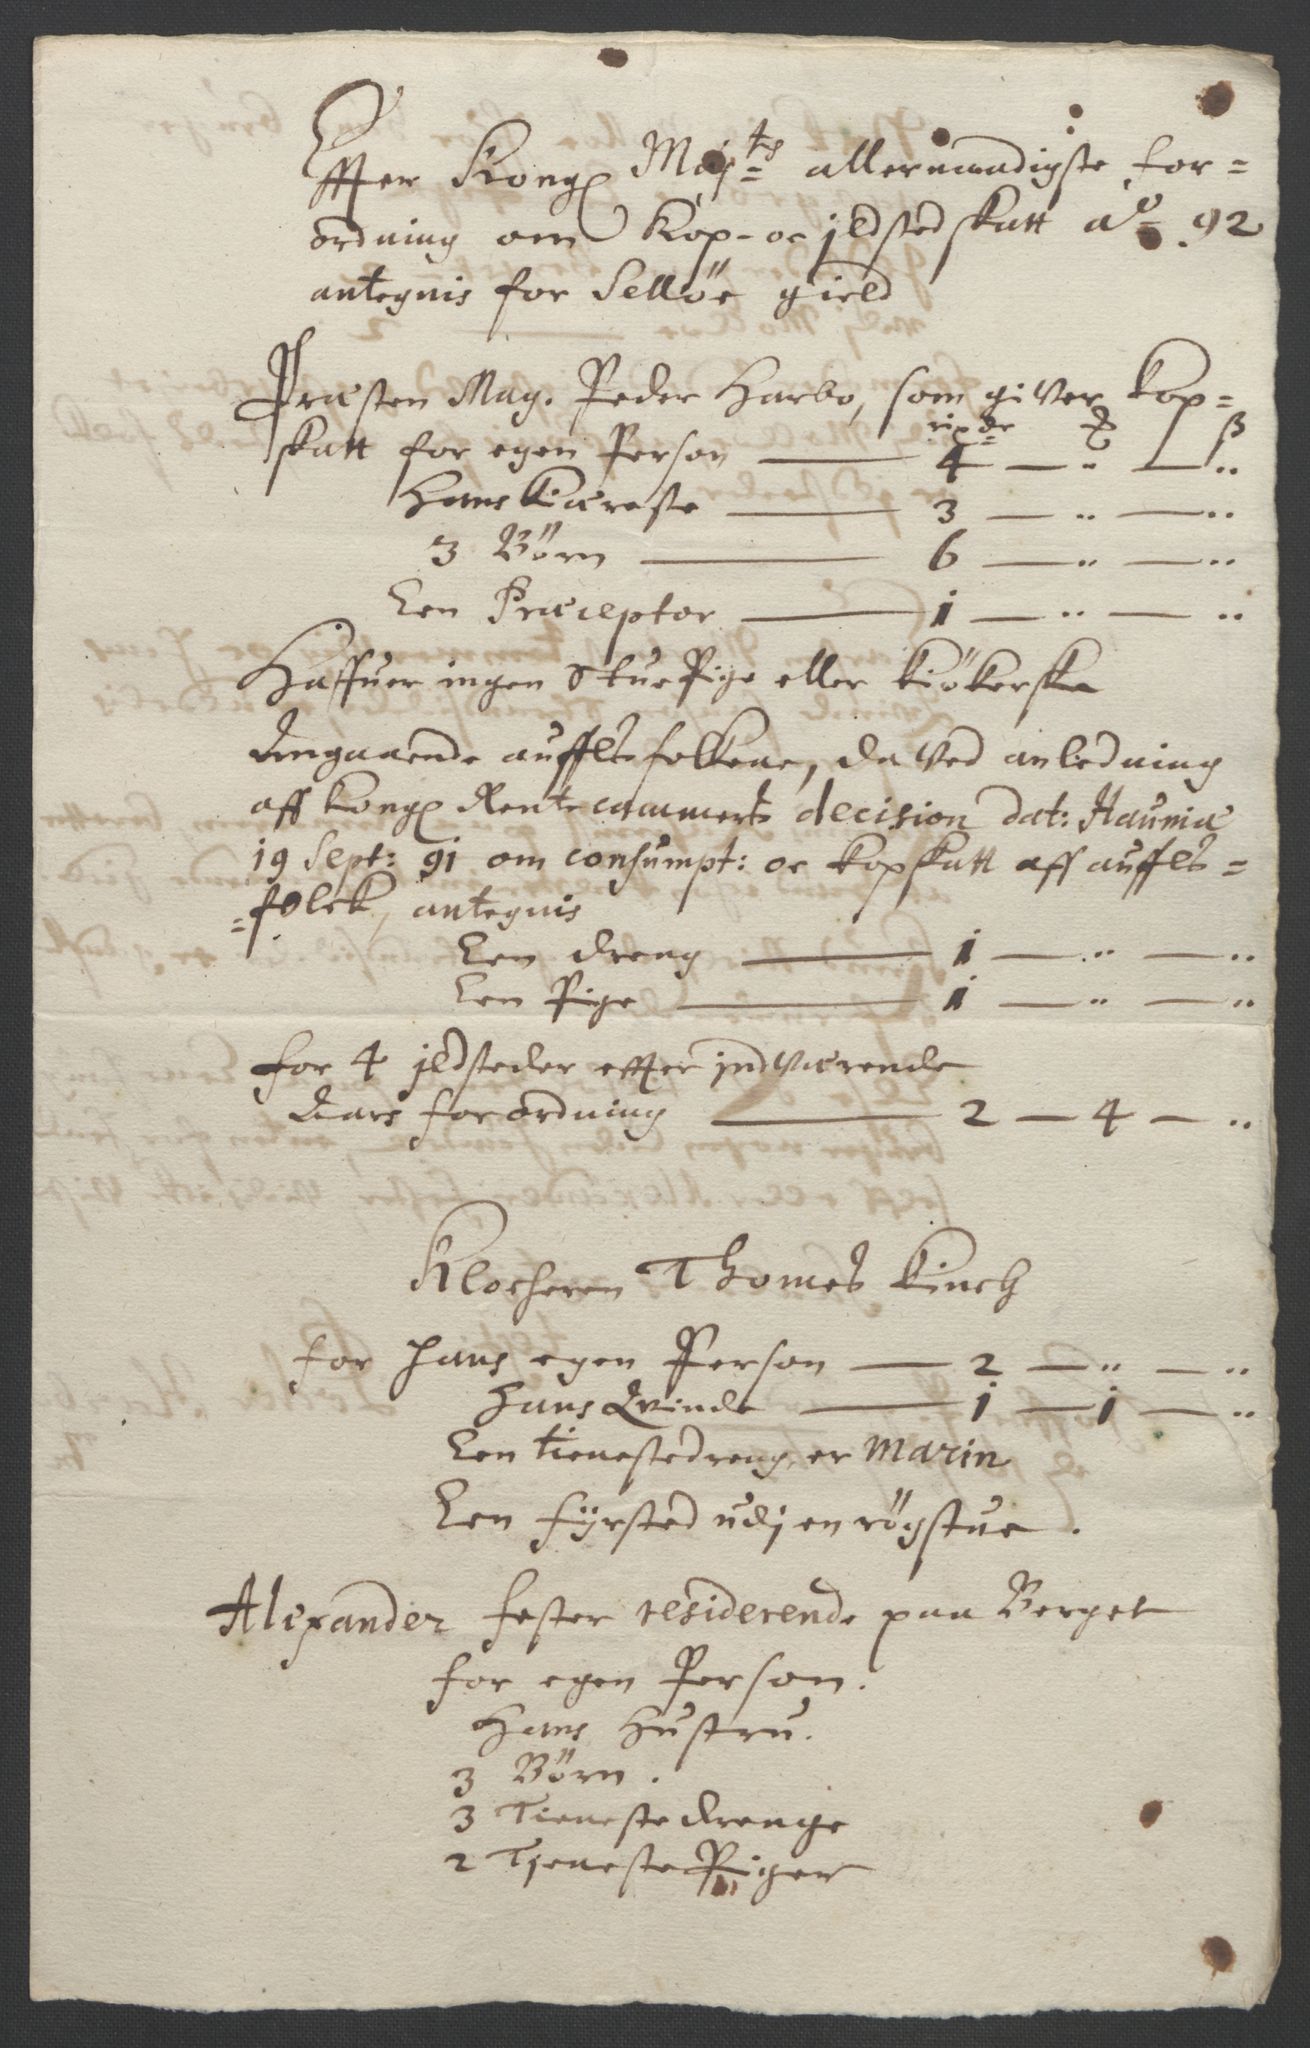 Effter Kong: Maj:ts allernaadigste for=
ordning om Kop- oc jldstedskatt a:o 92
antegnis for Selløe gield
Præsten Mag. Peder Harbo, som giver kop=
rixdr ß
skatt for egen Person — 4 — " — "
Hans Kiæreste — 3 — " — "
3 Börn — 6 — " — "
Een Præceptor — 1 — " — "
Haffuer ingen StuePige eller kiökerske
Angaaende aufflsfolkene, da ved anledning
aff kong: Rentecammerts decision dat: Hauniæ
19 Sept: 91 om consumpt: oc kopskatt aff auffls=
=folck, antegnis
Een dreng — 1 — " — "
Een Pige — 1 — " — "
for 4 jldsteder effter jndværende
Aars forordning — 2 — 4 — "
Klocheren Thomes Kinch
for hans egen Person — 2 — " — "
Hans Qvinde — 1 — 1 — "
Een tienestedreng er Marin
Een fyrsted udj en rögstue.
Alexander Fester residerende paa Berget
for egen Person.
Hans Hustru.
3 Börn.
3 Tienestedrenge
2 TjenestePiger